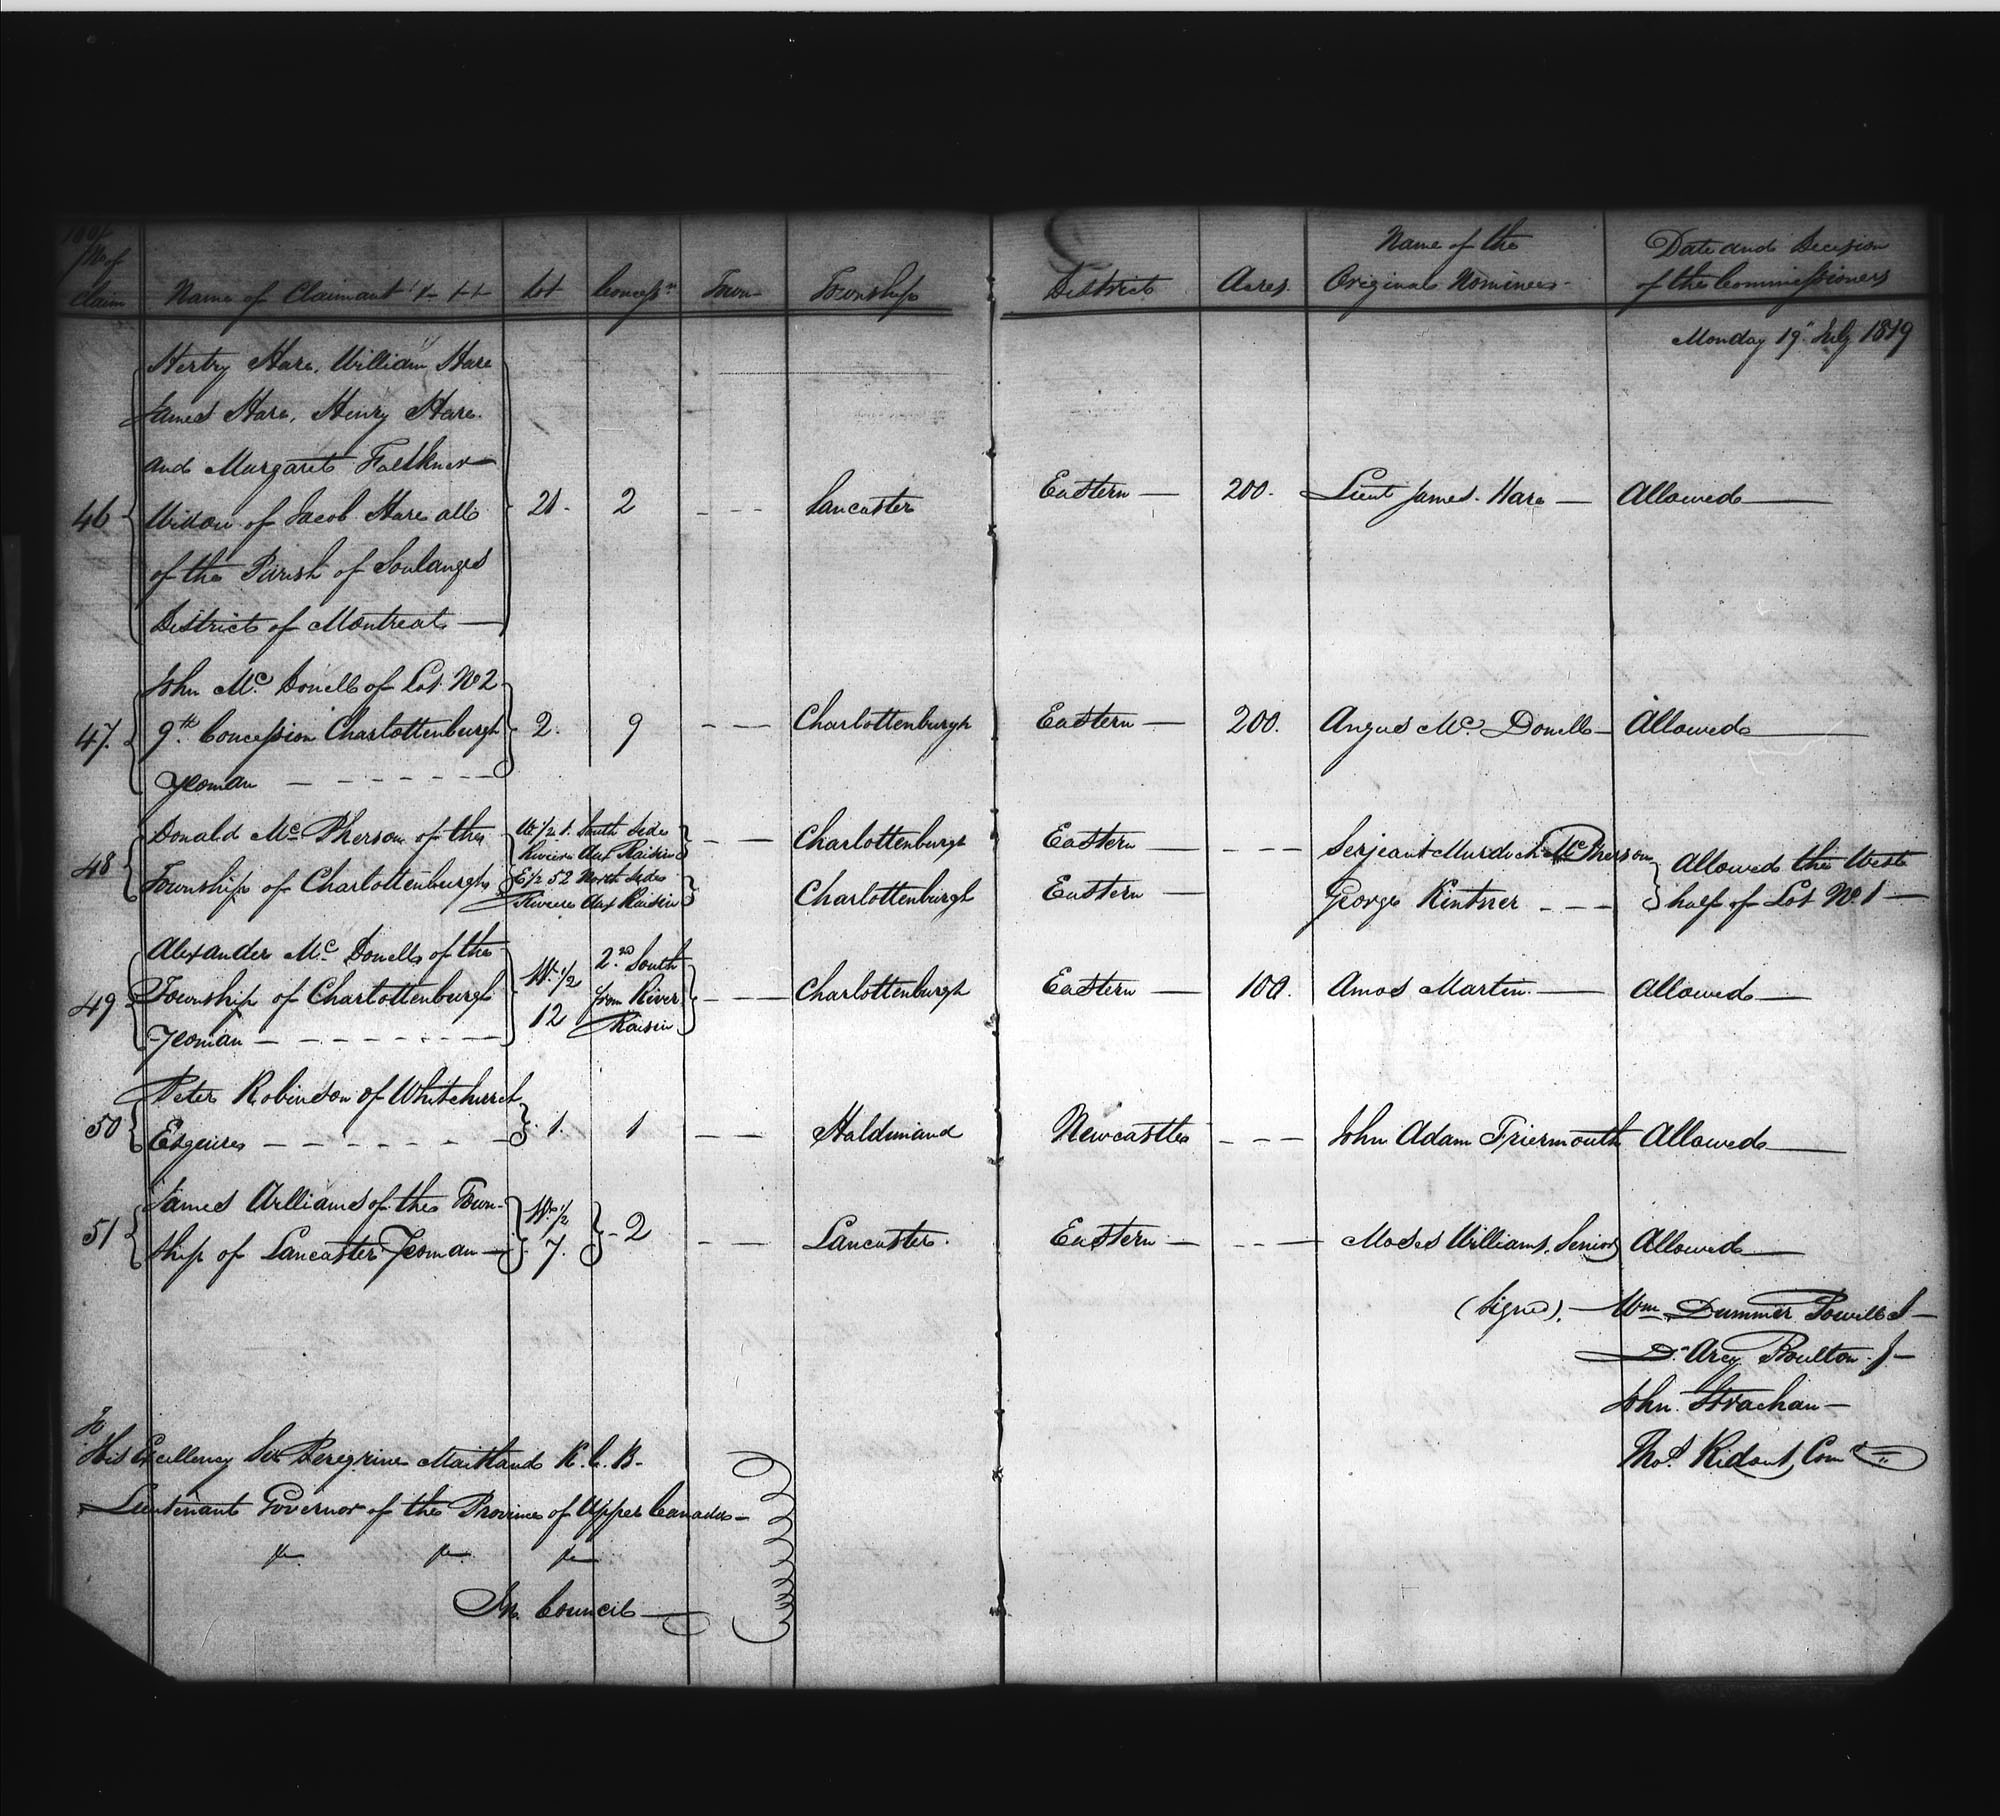 No. of claim | Name of Claimant &c ++ | Lot | Concessn | Town | Township | District | Acres. | Name of the Original Nominee | Date and Decision of the Commissioners
Monday 19th July 1819
Hertry Hare, William Hare
James Hare, Henry Hare
and Margaret Falkner
46 Widow of Jacob Hare all | 21. | 2 | - - - | Lancaster | Eastern — | 200. | Lieut James Hare — | Allowed —
of the Parish of Soulanges
District of Montreal —
John Mc Donell of Lot No 2
47. 9th Concession Charlottenburgh | 2. | 9 | - - - | Charlottenburgh | Eastern — | 200. | Angus Mc Donell — | Allowed —
Yeoman - - - - - -
48 Donald Mc Pherson of the | W 1/2 1. South Side Riviere Aux Raisin | - — | Charlottenburgh | Eastern — | - - — | Serjeant Murdoch Mc Pherson | Allowed the West
Township of Charlottenburgh | E 1/2 52 North Side Riviere Aux Raisin | Charlottenburgh | Eastern — | George Kintner - - - | half of Lot No. 1 —
Alexander Mc Donell of the | W. 1/2 | 2nd South
49 Township of Charlottenburgh | 12 | from River Raisin | - - — | Charlottenburgh | Eastern — | 100. | Amos Martin — | Allowed —
Yeoman - - - - - - -
50 Peter Robinson of Whitchurch | 1. | 1 | - — | Haldimand | Newcastle | - - — | John Adam Friermouth | Allowed —
Esquire - - - - - -
51 James Williams of the Town- | W. 1/2 | 2 | - — | Lancaster. | Eastern — | - - — | Moses Williams, Senior | Allowed —
ship of Lancaster Yeoman — | 7.
(Signed). — Wm Dummer Powell J —
D'Arcy Boulton J —
John Strachan —
Thos. Ridout, Comr
To
His Excellency Sir Peregrine Maitland K. C. B.
Lieutenant Governor of the Province of Upper Canada —
&c &c &c
In Council —